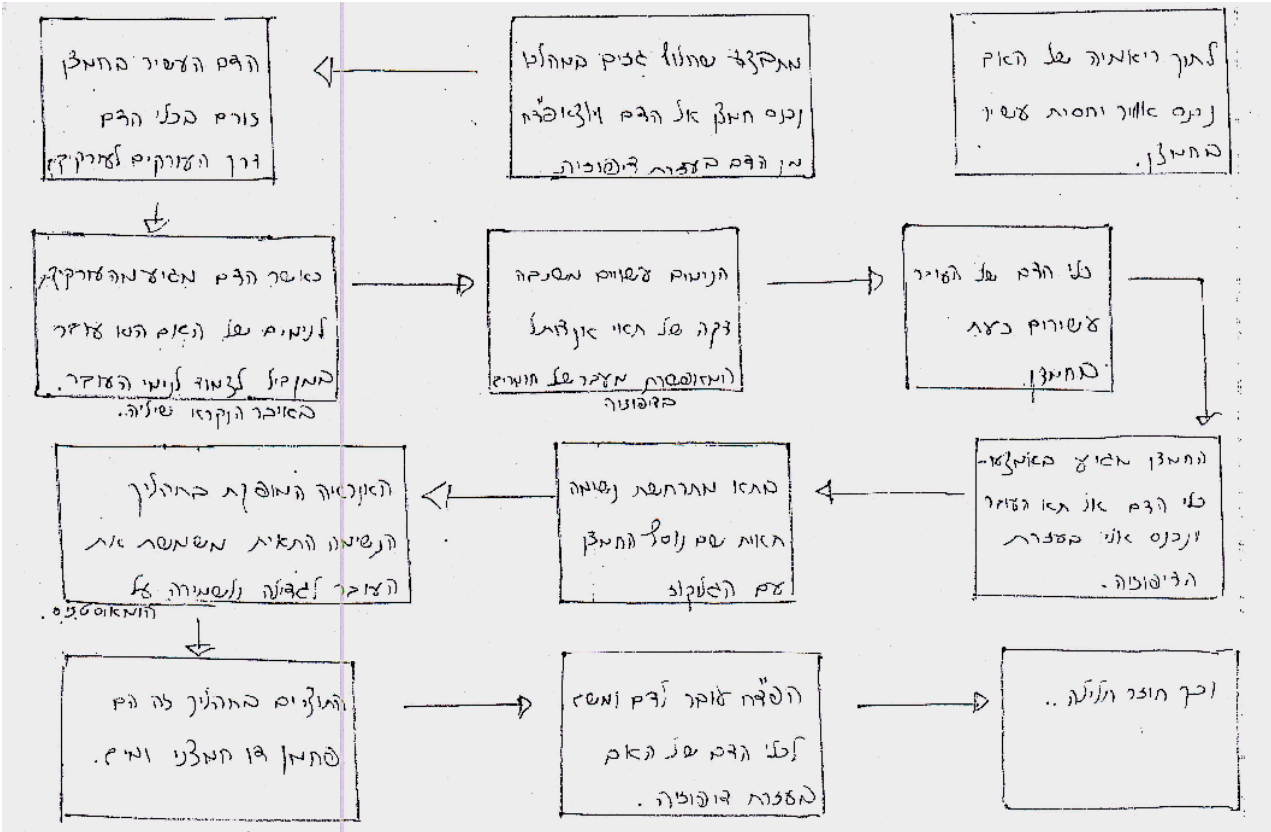 לתוך ריאותיה של האם
נכנס אוויר וחסית עשיר
בחמצן.
מתבצע שחלוף גזים במהלכו
נכנס חמצן אל הדם ויוצא פד"ח
מן הדם בעזרת דיפוזיה.
הדם העשיר בחמצן
זורם בכלי הדם
דרך העורקים לעורקיקים
כאשר הדם מגיע מהעורקיקים
לנימים של האם הוא עובר
במקביל לצמוד לנימי העובר.
באיבר הנקרא שיליה.
הנימים עשויים משכבה
דקה של תאי אנדותל
המאפשרת מעבר של חומרים
בדיפוזיה
כלי הדם של העובר
עשירים כעת
בחמצן.
החמצן מגיע באמצעו-
כלי הדם אל תא העובר
ונכנס אליו בעזרת
הדיפוזיה.
בתא מתרחשת נשימה
תאית שם נוסף החמצן
עם הגלוקוז
האנרגיה המופקת בתהליך
הנשימה התאית משמשת את
העובר לגדילה ולשמירה על
הומאוסטזיס.
התוצרים בתהליך זה הם
פחמן דו חמצני ומים.
הפד"ח עובר לדם ומשם
לכלי הדם של האם
בעזרת דיפוזיה.
וכך חוזר חלילה..